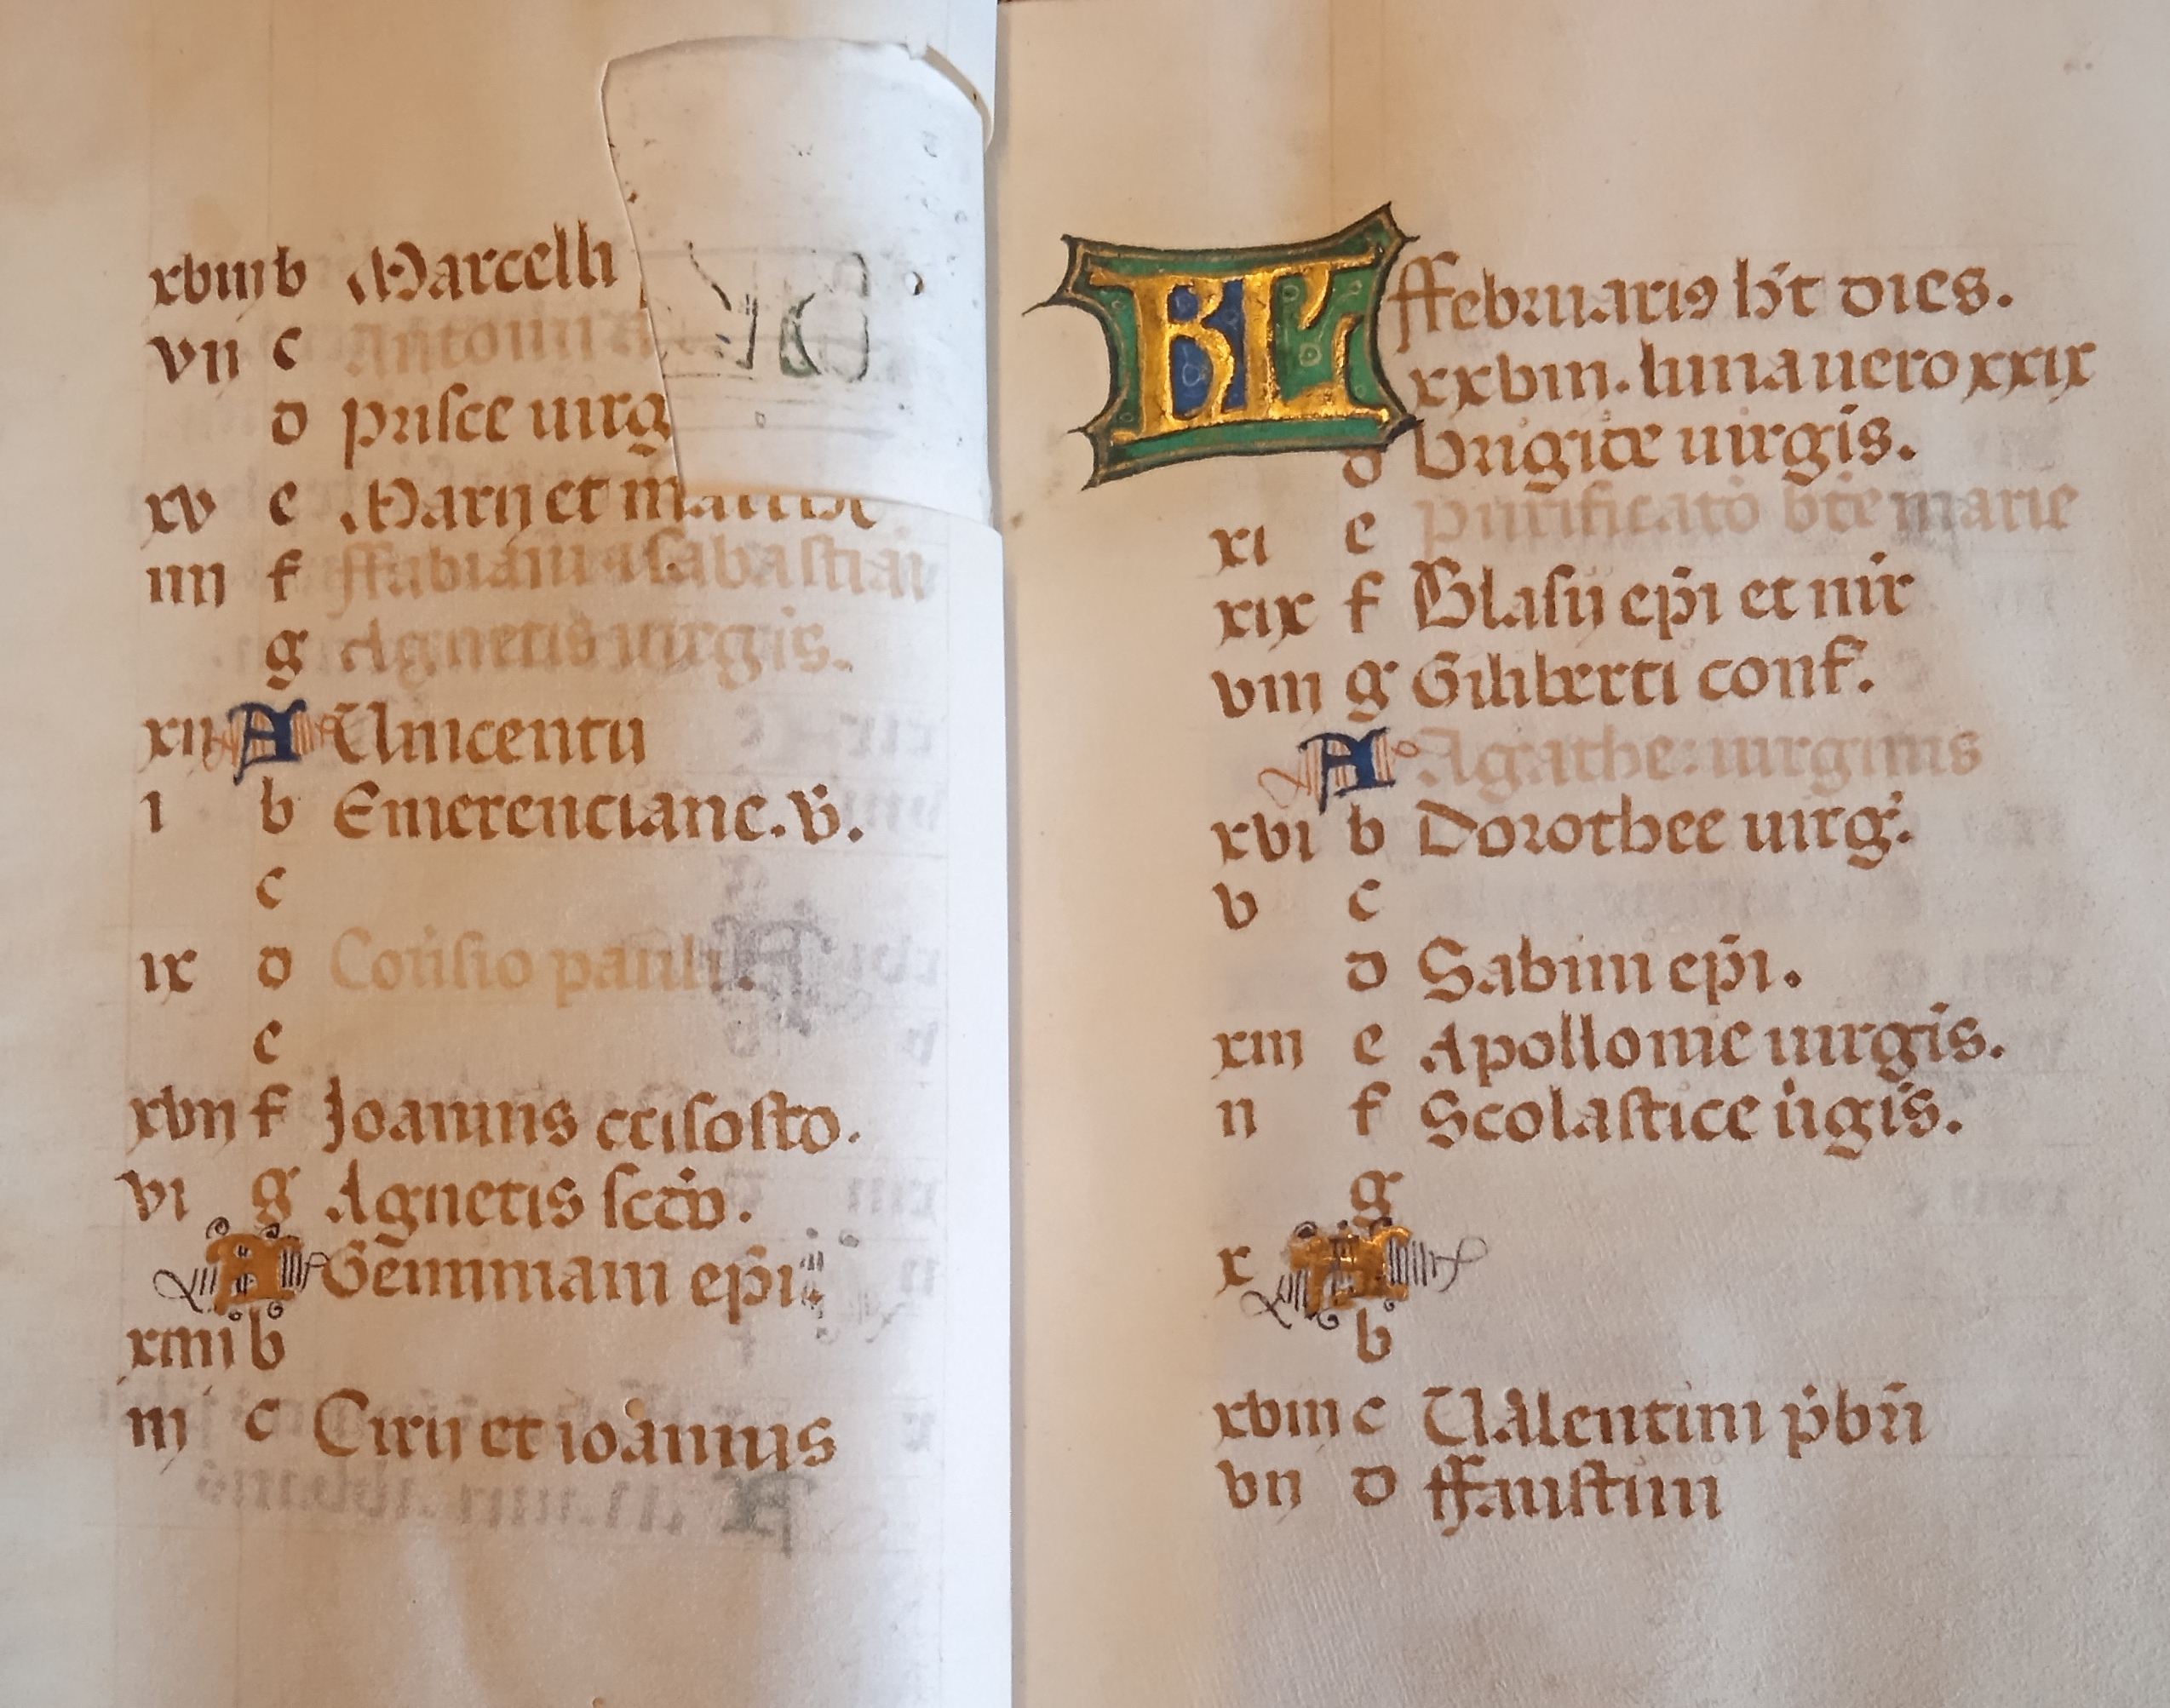 xviii b Marcelli
vii c Antonii
d prisce uirg
xv e Marij et
iiii f ffabiani ⁊ sabastiani
g Agnetis uirgis.
xii A Uincentii
i b Emerenciane. v̄.
c
ix d Cōuersio pauli.
e
xvii f Joannis crisosto.
vi g Agnetis scd̄o.
A Gemmiani ep̄i
xiiii b
iij c Cirii et ioannis
KL ffebruariꝰ hꝫt dies.
xxviii. luna uero xxix
d brigide uirgis.
xi e purificatō bt̄e marie
xix f Blasii ep̄i et mr̄
viii g Giliberti conf.
A Agathe uirginis
xvi b Dorothee uirg.
v c
d Sabini ep̄i.
xiii e Apollonie uirgis.
ii f Scolastice uigis.
g
x A
b
xviii c Ualentini pb̄ri
vii d ffaustini